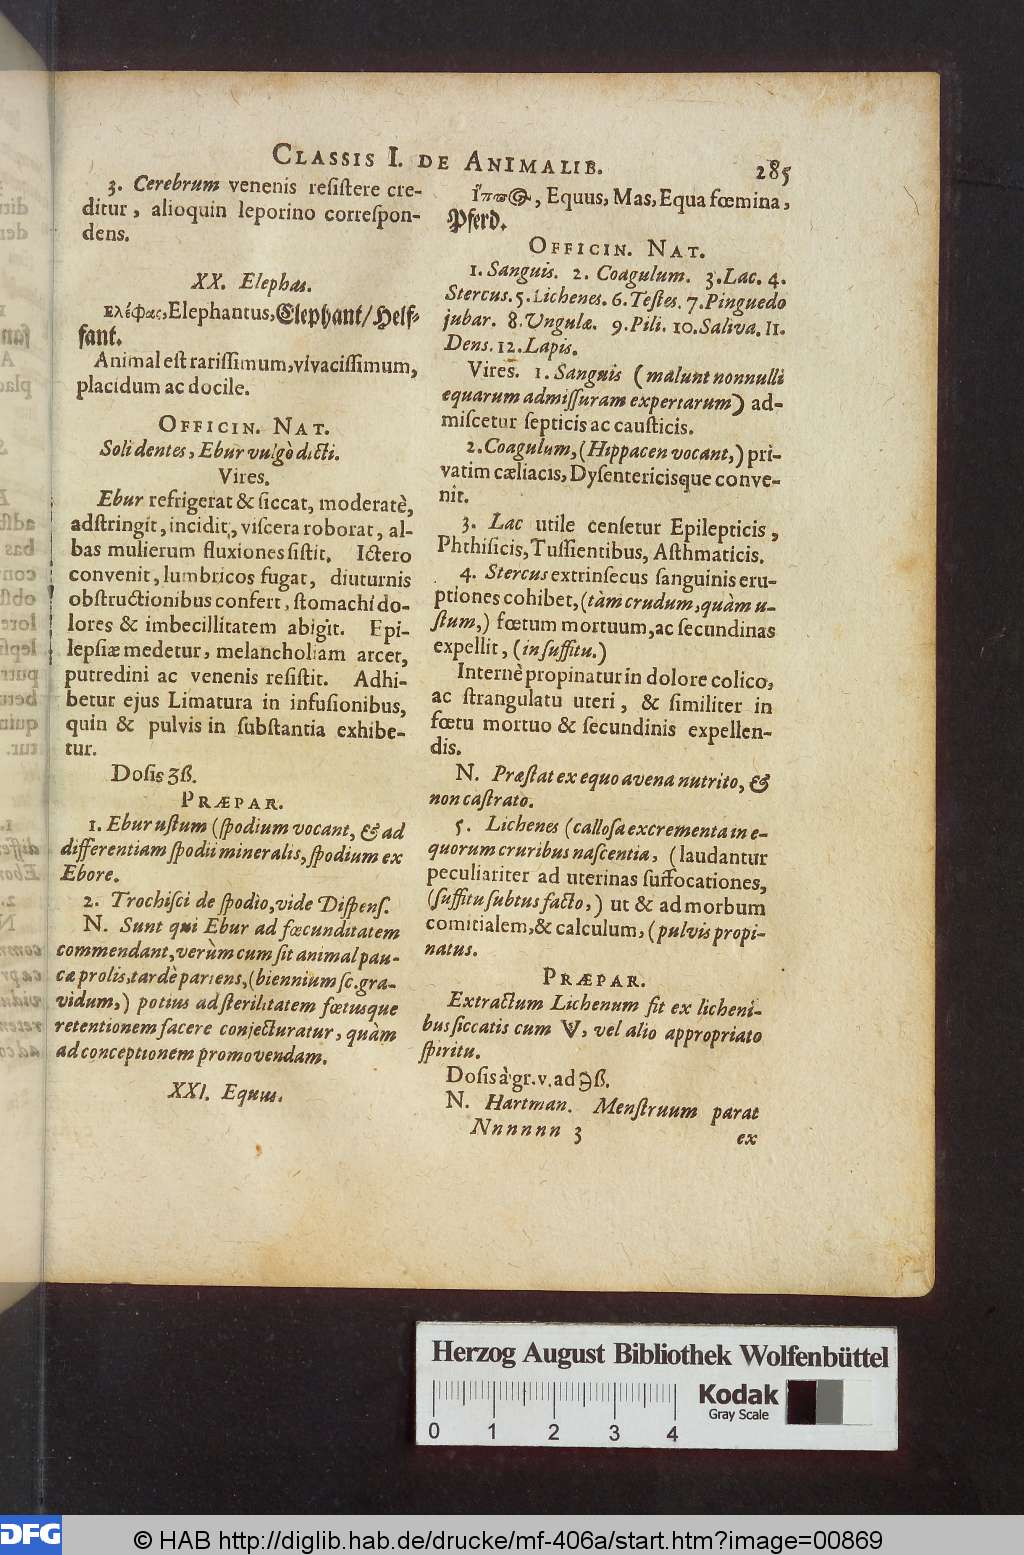 CLASSIS I. DE ANIMALIB. 285
3. Cerebrum venenis resistere cre-
ditur, alioquin leporino correspon-
dens.
XX. Elephas.
ελέφας, Elephantus, Elephant/Helf-
fant.
Animal est rarissimum, vivacissimum,
placidum ac docile.
OFFICIN. NAT.
Soli dentes, Ebur vulgò dicti.
Vires.
Ebur refrigerat & siccat, moderatè,
adstringit, incidit, viscera roborat, al-
bas mulierum fluxiones sistit. Ictero
convenit, lumbricos fugat, diuturnis
obstructionibus confert, stomachi do-
lores & imbecillitatem abigit. Epi-
lepsiæ medetur, melancholiam arcet,
putredini ac venenis resistit. Adhi-
betur ejus Limatura in infusionibus,
quin & pulvis in substantia exhibe-
tur.
Dosis ʒß.
PRÆPAR.
1. Ebur ustum (spodium vocant, & ad
differentiam spodii mineralis, spodium ex
Ebore.
2. Trochisci de spodio, vide Dispens.
N. Sunt qui Ebur ad fœcunditatem
commendant, verùm cum sit animal pau-
cæ prolis, tardè pariens, (biennium sc. gra-
vidum,) potius ad sterilitatem fœtusque
retentionem facere conjecturatur, quàm
ad conceptionem promovendam.
XXI. Equus.
ἵππος, Equus, Mas, Equa fœmina,
Pferd.
OFFICIN. NAT.
1. Sanguis. 2. Coagulum. 3. Lac. 4.
Stercus. 5. Lichenes. 6. Testes. 7. Pinguedo
jubar. 8. Ungulæ. 9. Pili. 10. Saliva. 11.
Dens. 12. Lapis.
Vires. 1. Sanguis (malunt nonnulli
equarum admissuram expertarum) ad-
miscetur septicis ac causticis.
2. Coagulum, (Hippacen vocant,) pri-
vatim cæliacis, Dysentericisque conve-
nit.
3. Lac utile censetur Epilepticis,
Phthisicis, Tussientibus, Asthmaticis.
4. Stercus extrinsecus sanguinis eru-
ptiones cohibet, (tàm crudum, quàm u-
stum,) fœtum mortuum, ac secundinas
expellit, (in suffitu.)
Internè propinatur in dolore colico,
ac strangulatu uteri, & similiter in
fœtu mortuo & secundinis expellen-
dis.
N. Præstat ex equo avena nutrito, &
non castrato.
5. Lichenes (callosa excrementa in e-
quorum cruribus nascentia, (laudantur
peculiariter ad uterinas suffocationes,
(suffitu subtus facto,) ut & ad morbum
comitialem, & calculum, (pulvis propi-
natus.
PRÆPAR.
Extractum Lichenum fit ex licheni-
bus siccatis cum V, vel alio appropriato
spiritu.
Dosis à gr. v. ad ℈ß.
N. Hartman. Menstruum parat
Nnnnnn 3 ex
Herzog August Bibliothek Wolfenbüttel
Kodak
Gray Scale
0 1 2 3 4
DFG © HAB http://diglib.hab.de/drucke/mf-406a/start.htm?image=00869